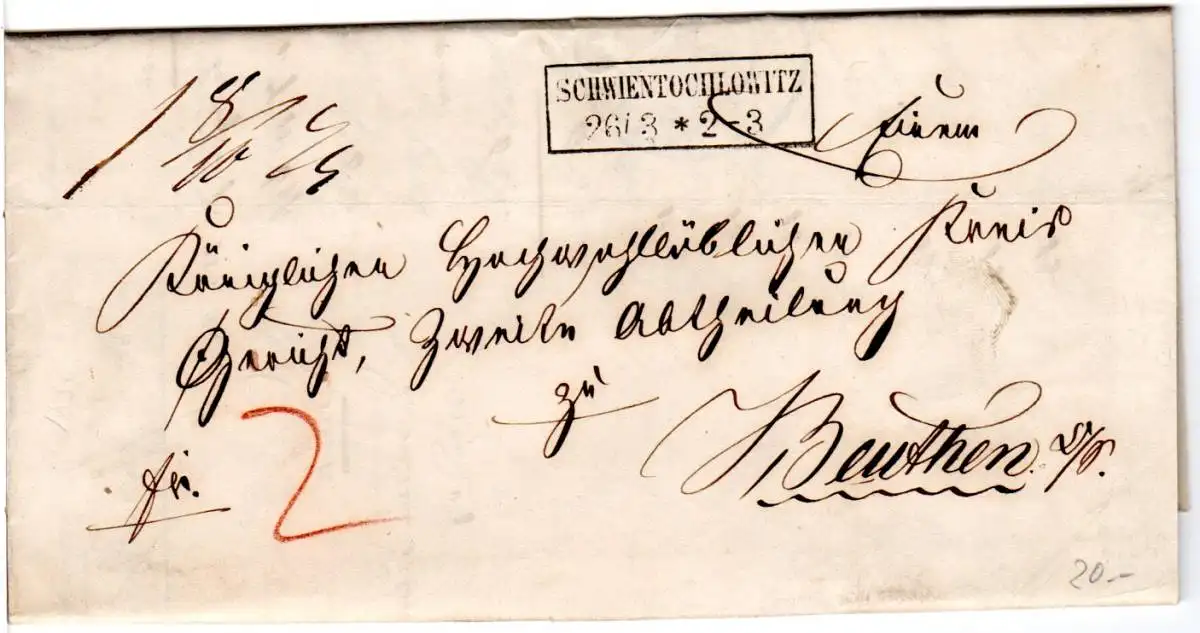 SCHWIENTOCHLOWITZ
26/3 * 2-3
Einem
Königlichen Hochwohllöblichen Kreis
Gericht, Zweite Abtheilung
zu
Beuthen O/S.
fr.
2
20.-